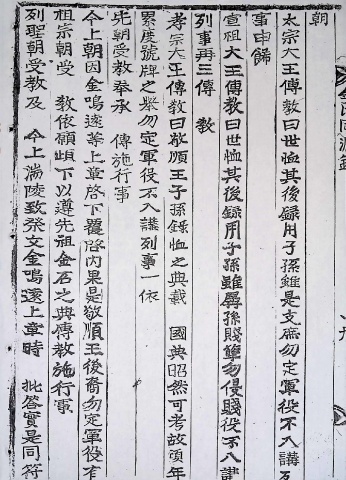 朝
太宗大王傳教曰世恤其後錄用子孫雖是支庶勿定軍役不入講
事申歸
宣祖大王傳教曰世恤其後錄用子孫雖孱孫賤孽勿侵賤役不入講
列事再三傳 教
孝宗大王傳教曰敬順王子孫錄恤之典載 國典昭然可考故頃年
累度號牌之際勿定軍役不入講列事一依
先朝受教奉承 傳施行事
今上朝因金鳴遠等上章啓下覆啓內果是敬順王後裔勿定軍役有
祖宗朝受 教依願頉下以遵先祖金石之典傳教施行事
列聖朝受教及 今上湍陵致祭文金鳴遠上章時 批答實是同符